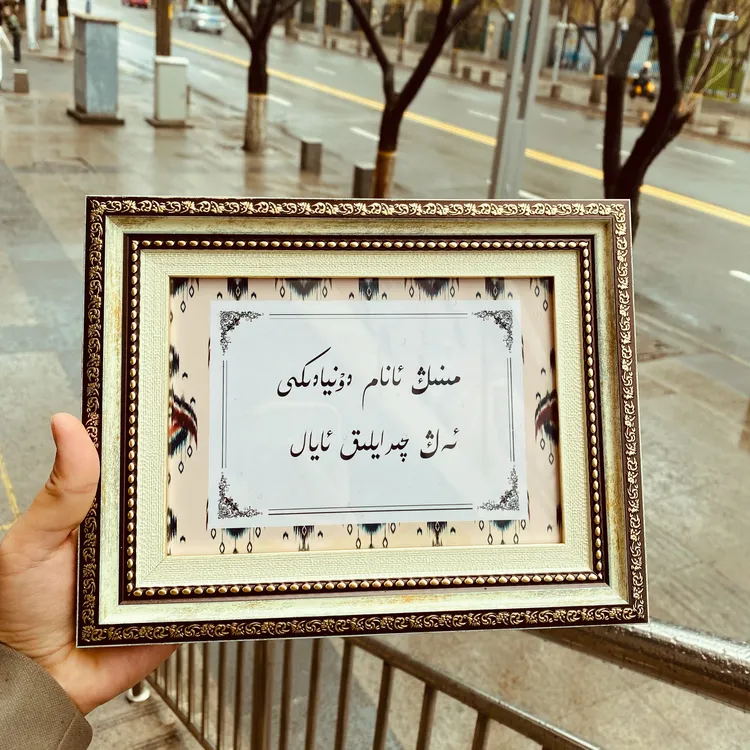 مىنىڭ ئانام دۇنيادىكى
ئەڭ چىرايلىق ئايال